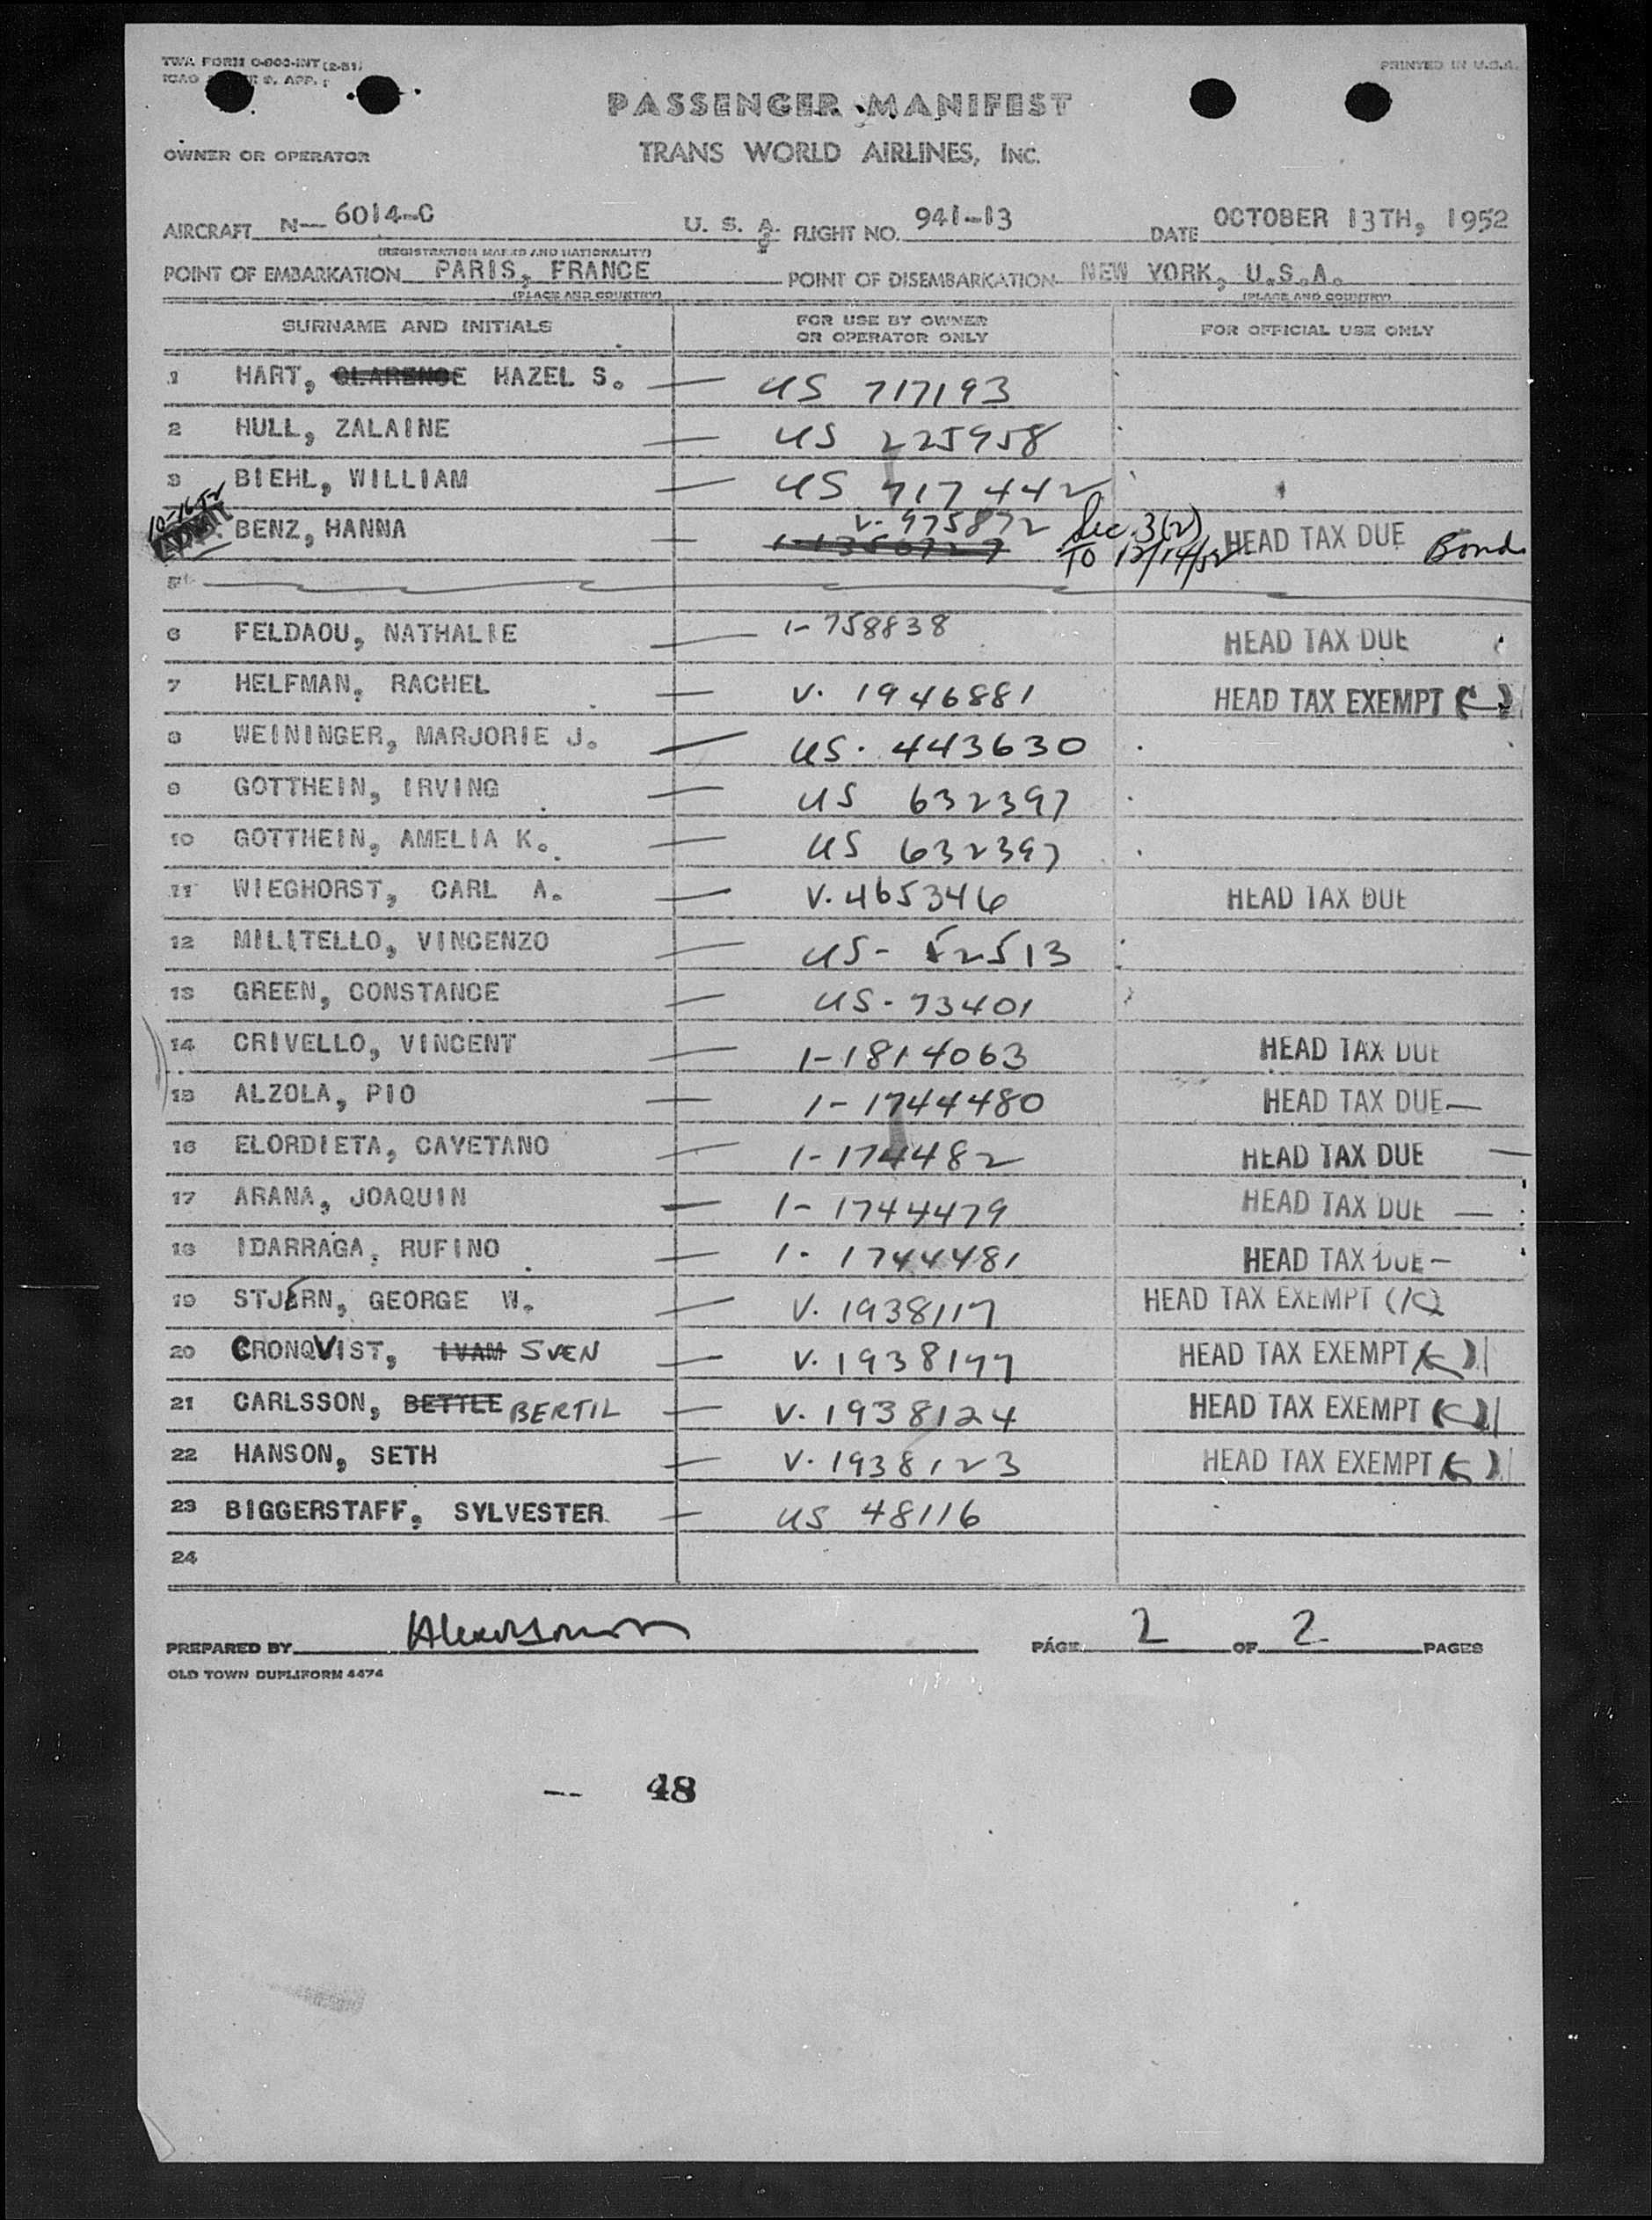 TWA FORM O-800-INT (2-51)
ICAO 9, APP.
PRINTED IN U.S.A.
PASSENGER MANIFEST
OWNER OR OPERATOR TRANS WORLD AIRLINES, INC.
AIRCRAFT N- 6014-C U. S. A. FLIGHT NO. 941-13 DATE OCTOBER 13TH, 1952
(REGISTRATION MARKS AND NATIONALITY)
POINT OF EMBARKATION PARIS, FRANCE POINT OF DISEMBARKATION NEW YORK, U.S.A.
(PLACE AND COUNTRY) (PLACE AND COUNTRY)
SURNAME AND INITIALS FOR USE BY OWNER OR OPERATOR ONLY FOR OFFICIAL USE ONLY
1 HART, CLARENCE HAZEL S. — US 717193
2 HULL, ZALAINE — US 225958
3 BIEHL, WILLIAM — US 717442
10-16-52 ADMIT BENZ, HANNA — V. 975872 Sec. 3(2) TO 12/14/52 HEAD TAX DUE Bond
5
6 FELDAOU, NATHALIE — 1-758838 HEAD TAX DUE
7 HELFMAN, RACHEL — V. 1946881 HEAD TAX EXEMPT
8 WEININGER, MARJORIE J. — US. 443630
9 GOTTHEIN, IRVING — US 632397
10 GOTTHEIN, AMELIA K. — US 632397
11 WIEGHORST, CARL A. — V. 465346 HEAD TAX DUE
12 MILITELLO, VINCENZO — US- 52513
13 GREEN, CONSTANCE — US-73401
14 CRIVELLO, VINCENT — 1-1814063 HEAD TAX DUE
15 ALZOLA, PIO — 1-1744480 HEAD TAX DUE —
16 ELORDIETA, CAYETANO — 1-174482 HEAD TAX DUE —
17 ARANA, JOAQUIN — 1-1744479 HEAD TAX DUE —
18 IDARRAGA, RUFINO — 1-1744481 HEAD TAX DUE —
19 STJERN, GEORGE W. — V. 1938117 HEAD TAX EXEMPT
20 CRONQVIST, IVAM SVEN — V. 1938177 HEAD TAX EXEMPT
21 CARLSSON, BETTLE BERTIL — V. 1938124 HEAD TAX EXEMPT
22 HANSON, SETH — V. 1938123 HEAD TAX EXEMPT
23 BIGGERSTAFF, SYLVESTER — US 48116
24
PREPARED BY PAGE 2 OF 2 PAGES
OLD TOWN DUPLIFORM 4474
-- 48